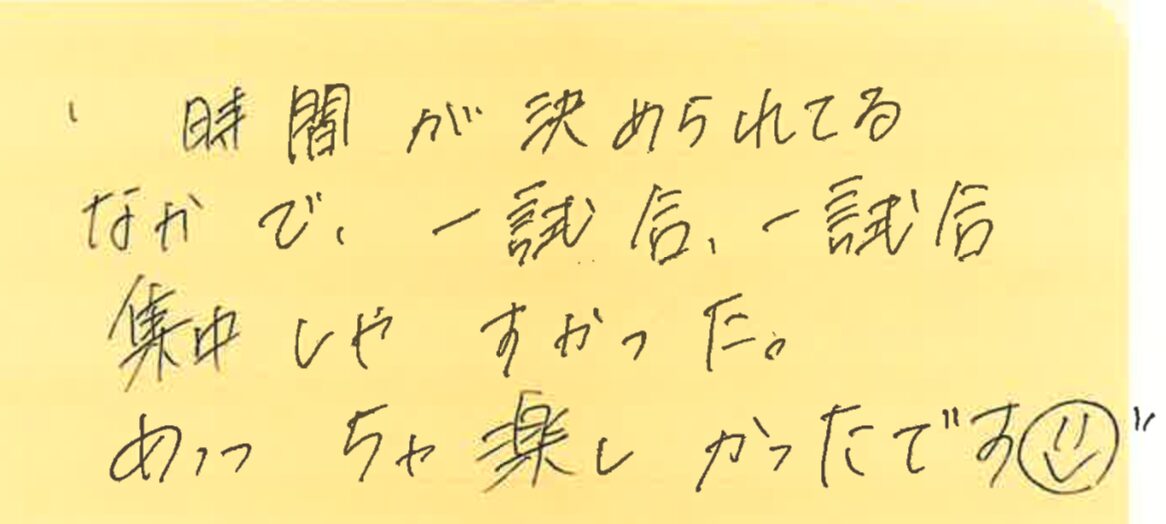 時間が決められてる
なかで、一試合、一試合
集中しやすかった。
めっちゃ楽しかったです